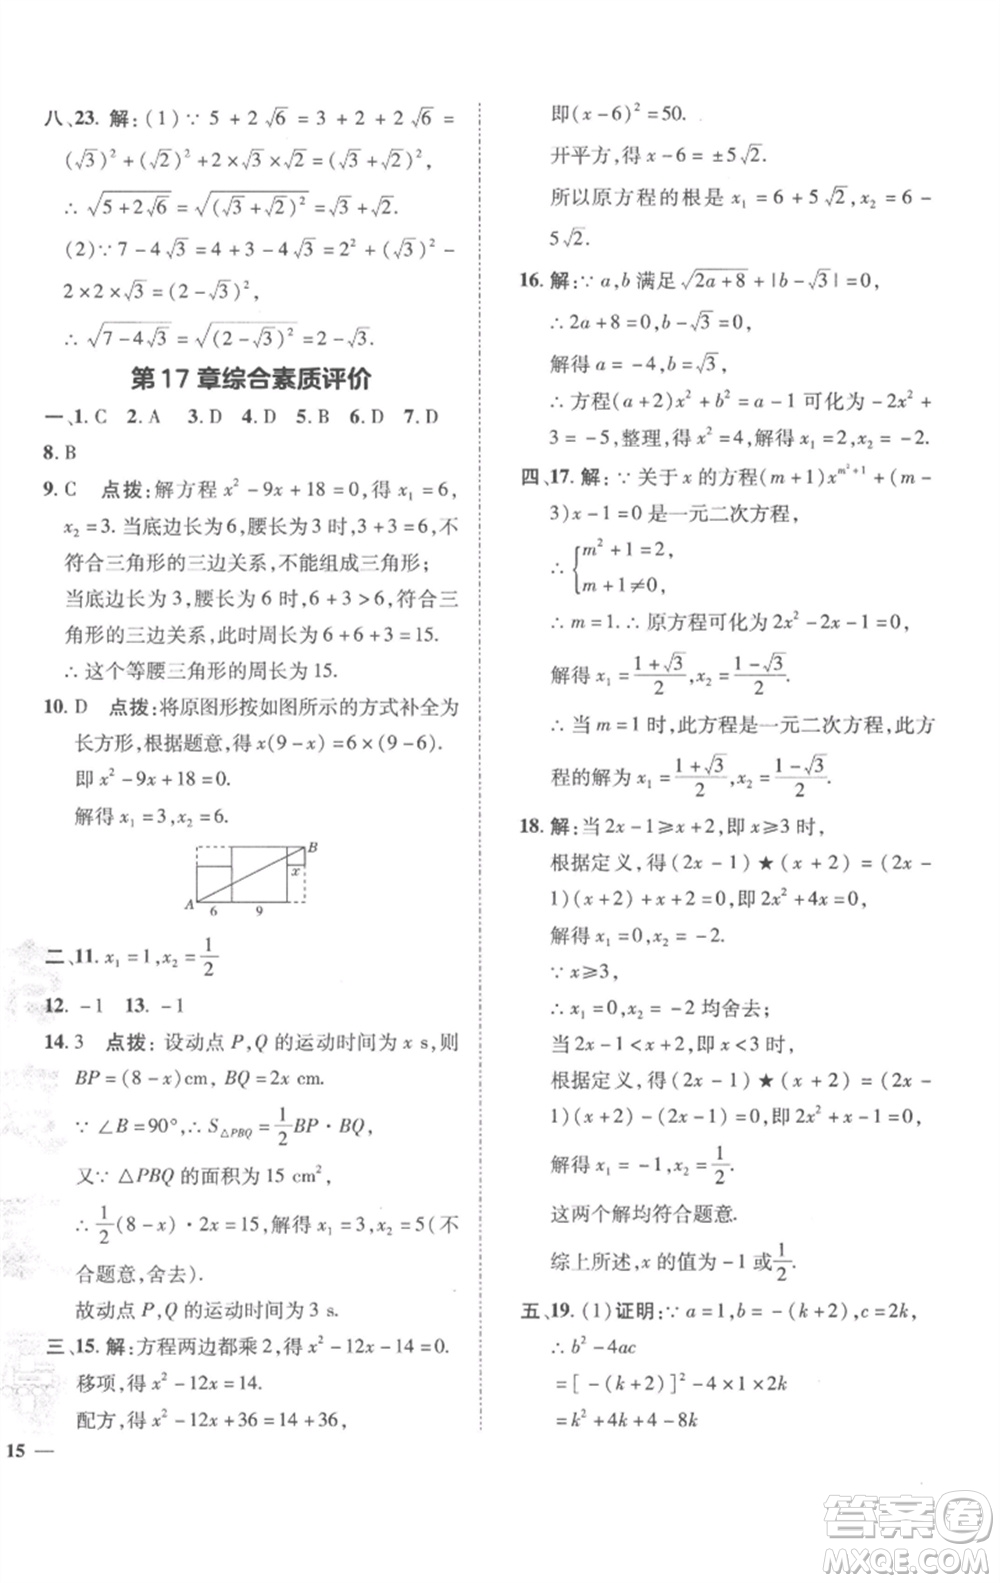 八、23. 解：(1)∵ 5 + 2√6 = 3 + 2 + 2√6 =
(√3)² + (√2)² + 2 × √3 × √2 = (√3 + √2)²,
∴ √(5 + 2√6) = √((√3 + √2)²) = √3 + √2.
(2)∵ 7 − 4√3 = 4 + 3 − 4√3 = 2² + (√3)² −
2 × 2 × √3 = (2 − √3)²,
∴ √(7 − 4√3) = √((2 − √3)²) = 2 − √3.
第 17 章综合素质评价
一、1. C 2. A 3. D 4. D 5. B 6. D 7. D
8. B
9. C 点拨：解方程 x² − 9x + 18 = 0, 得 x₁ = 6,
x₂ = 3. 当底边长为 6, 腰长为 3 时, 3 + 3 = 6, 不
符合三角形的三边关系, 不能组成三角形；
当底边长为 3, 腰长为 6 时, 6 + 3 > 6, 符合三
角形的三边关系, 此时周长为 6 + 6 + 3 = 15.
∴ 这个等腰三角形的周长为 15.
10. D 点拨：将原图形按如图所示的方式补全为
长方形, 根据题意, 得 x(9 − x) = 6 × (9 − 6).
即 x² − 9x + 18 = 0.
解得 x₁ = 3, x₂ = 6.
B
x
A 6 9
二、11. x₁ = 1, x₂ = 1/2
12. −1 13. −1
14. 3 点拨：设动点 P, Q 的运动时间为 x s, 则
BP = (8 − x)cm, BQ = 2x cm.
∵ ∠B = 90°, ∴ S△PBQ = 1/2 BP · BQ,
又∵ △PBQ 的面积为 15 cm²,
∴ 1/2 (8 − x) · 2x = 15, 解得 x₁ = 3, x₂ = 5(不
合题意, 舍去).
故动点 P, Q 的运动时间为 3 s.
三、15. 解：方程两边都乘 2, 得 x² − 12x − 14 = 0.
移项, 得 x² − 12x = 14.
配方, 得 x² − 12x + 36 = 14 + 36,
15 —
即(x − 6)² = 50.
开平方, 得 x − 6 = ±5√2.
所以原方程的根是 x₁ = 6 + 5√2, x₂ = 6 −
5√2.
16. 解：∵ a, b 满足 √(2a + 8) + |b − √3| = 0,
∴ 2a + 8 = 0, b − √3 = 0,
解得 a = −4, b = √3,
∴ 方程(a + 2)x² + b² = a − 1 可化为 −2x² +
3 = −5, 整理, 得 x² = 4, 解得 x₁ = 2, x₂ = −2.
四、17. 解：∵ 关于 x 的方程(m + 1)x^(m² + 1) + (m −
3)x − 1 = 0 是一元二次方程,
∴ { m² + 1 = 2,
m + 1 ≠ 0,
∴ m = 1. ∴ 原方程可化为 2x² − 2x − 1 = 0,
解得 x₁ = (1 + √3)/2, x₂ = (1 − √3)/2.
∴ 当 m = 1 时, 此方程是一元二次方程, 此方
程的解为 x₁ = (1 + √3)/2, x₂ = (1 − √3)/2.
18. 解：当 2x − 1 ≥ x + 2, 即 x ≥ 3 时,
根据定义, 得(2x − 1) ★ (x + 2) = (2x −
1)(x + 2) + x + 2 = 0, 即 2x² + 4x = 0.
解得 x₁ = 0, x₂ = −2.
∵ x ≥ 3,
∴ x₁ = 0, x₂ = −2 均舍去；
当 2x − 1 < x + 2, 即 x < 3 时,
根据定义, 得(2x − 1) ★ (x + 2) = (2x −
1)(x + 2) − (x − 1) = 0, 即 2x² + x − 1 = 0,
解得 x₁ = −1, x₂ = 1/2.
这两个解均符合题意.
综上所述, x 的值为 −1 或 1/2.
五、19. (1)证明：∵ a = 1, b = −(k + 2), c = 2k,
∴ b² − 4ac
= [−(k + 2)]² − 4 × 1 × 2k
= k² + 4k + 4 − 8k
答案圈
MXQE.COM